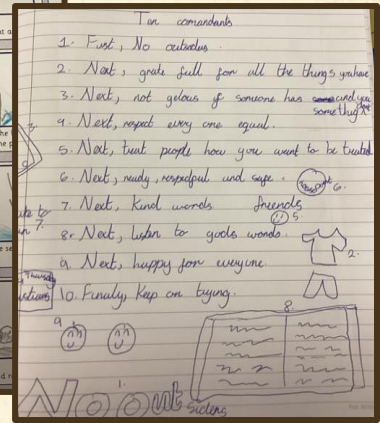 Ten comandants
1. Fust, No outsidus.
2. Next, grate full for all the things you have
3. Next, not gelous if someone has and you dont
something
4. Next, respect every one equal.
5. Next, treat people how you want to be treated
6. Next, ready, respectful and safe. 6.
7. Next, Kind words. friends
5.
8. Next, listen to gods words.
2.
9. Next, happy for everyone.
10. Finally Keep on trying.
8.
9.
1.
No Out siders